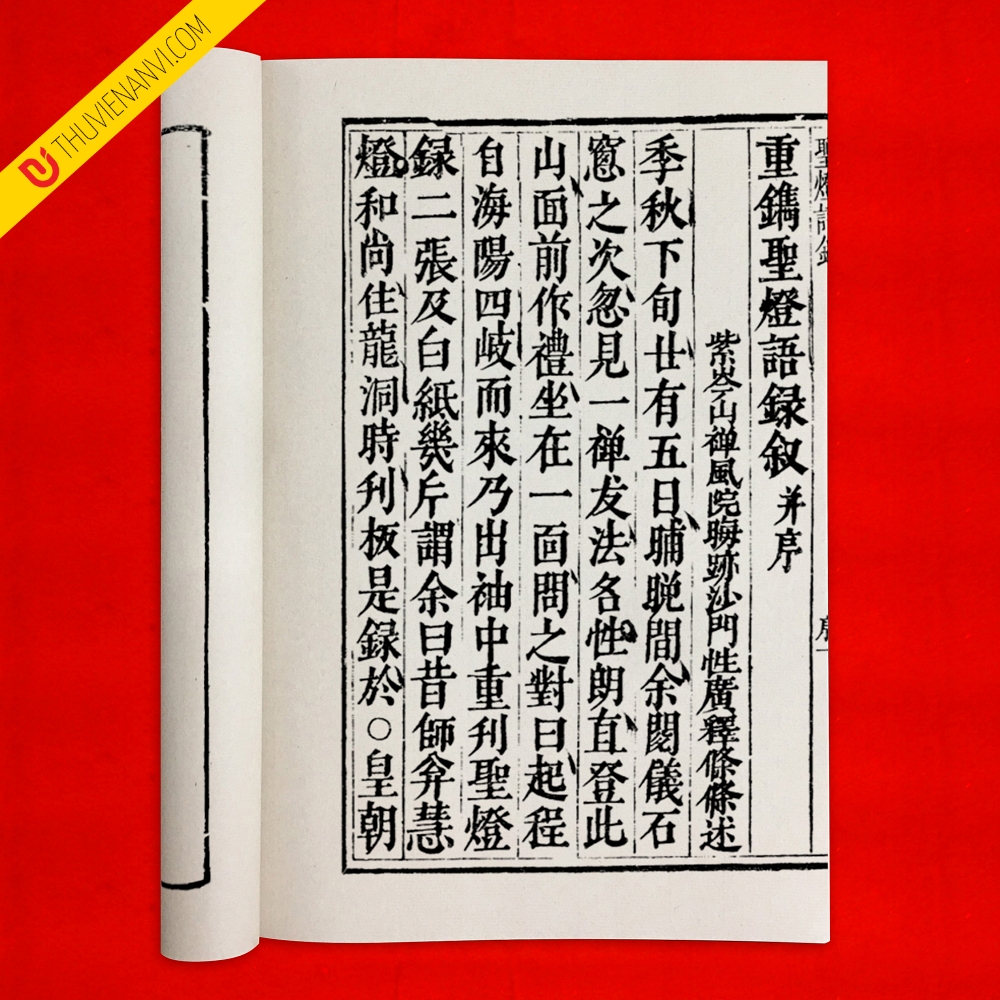 THUVIENANVI.COM
重鐫聖燈語録叙 并序
紫岑山禅風院晦跡沙門性廣釋條條述
季秋下旬廿有五日晡晩間余閲儀石
窓之次忽見一禅友法名性朗直登此
山面前作禮坐在一面問之對曰起程
自海陽四岐而來乃出袖中重刊聖燈
録二張及白紙幾斤謂余曰昔師弃慧
燈和尚住龍洞時刋板是録於○皇朝